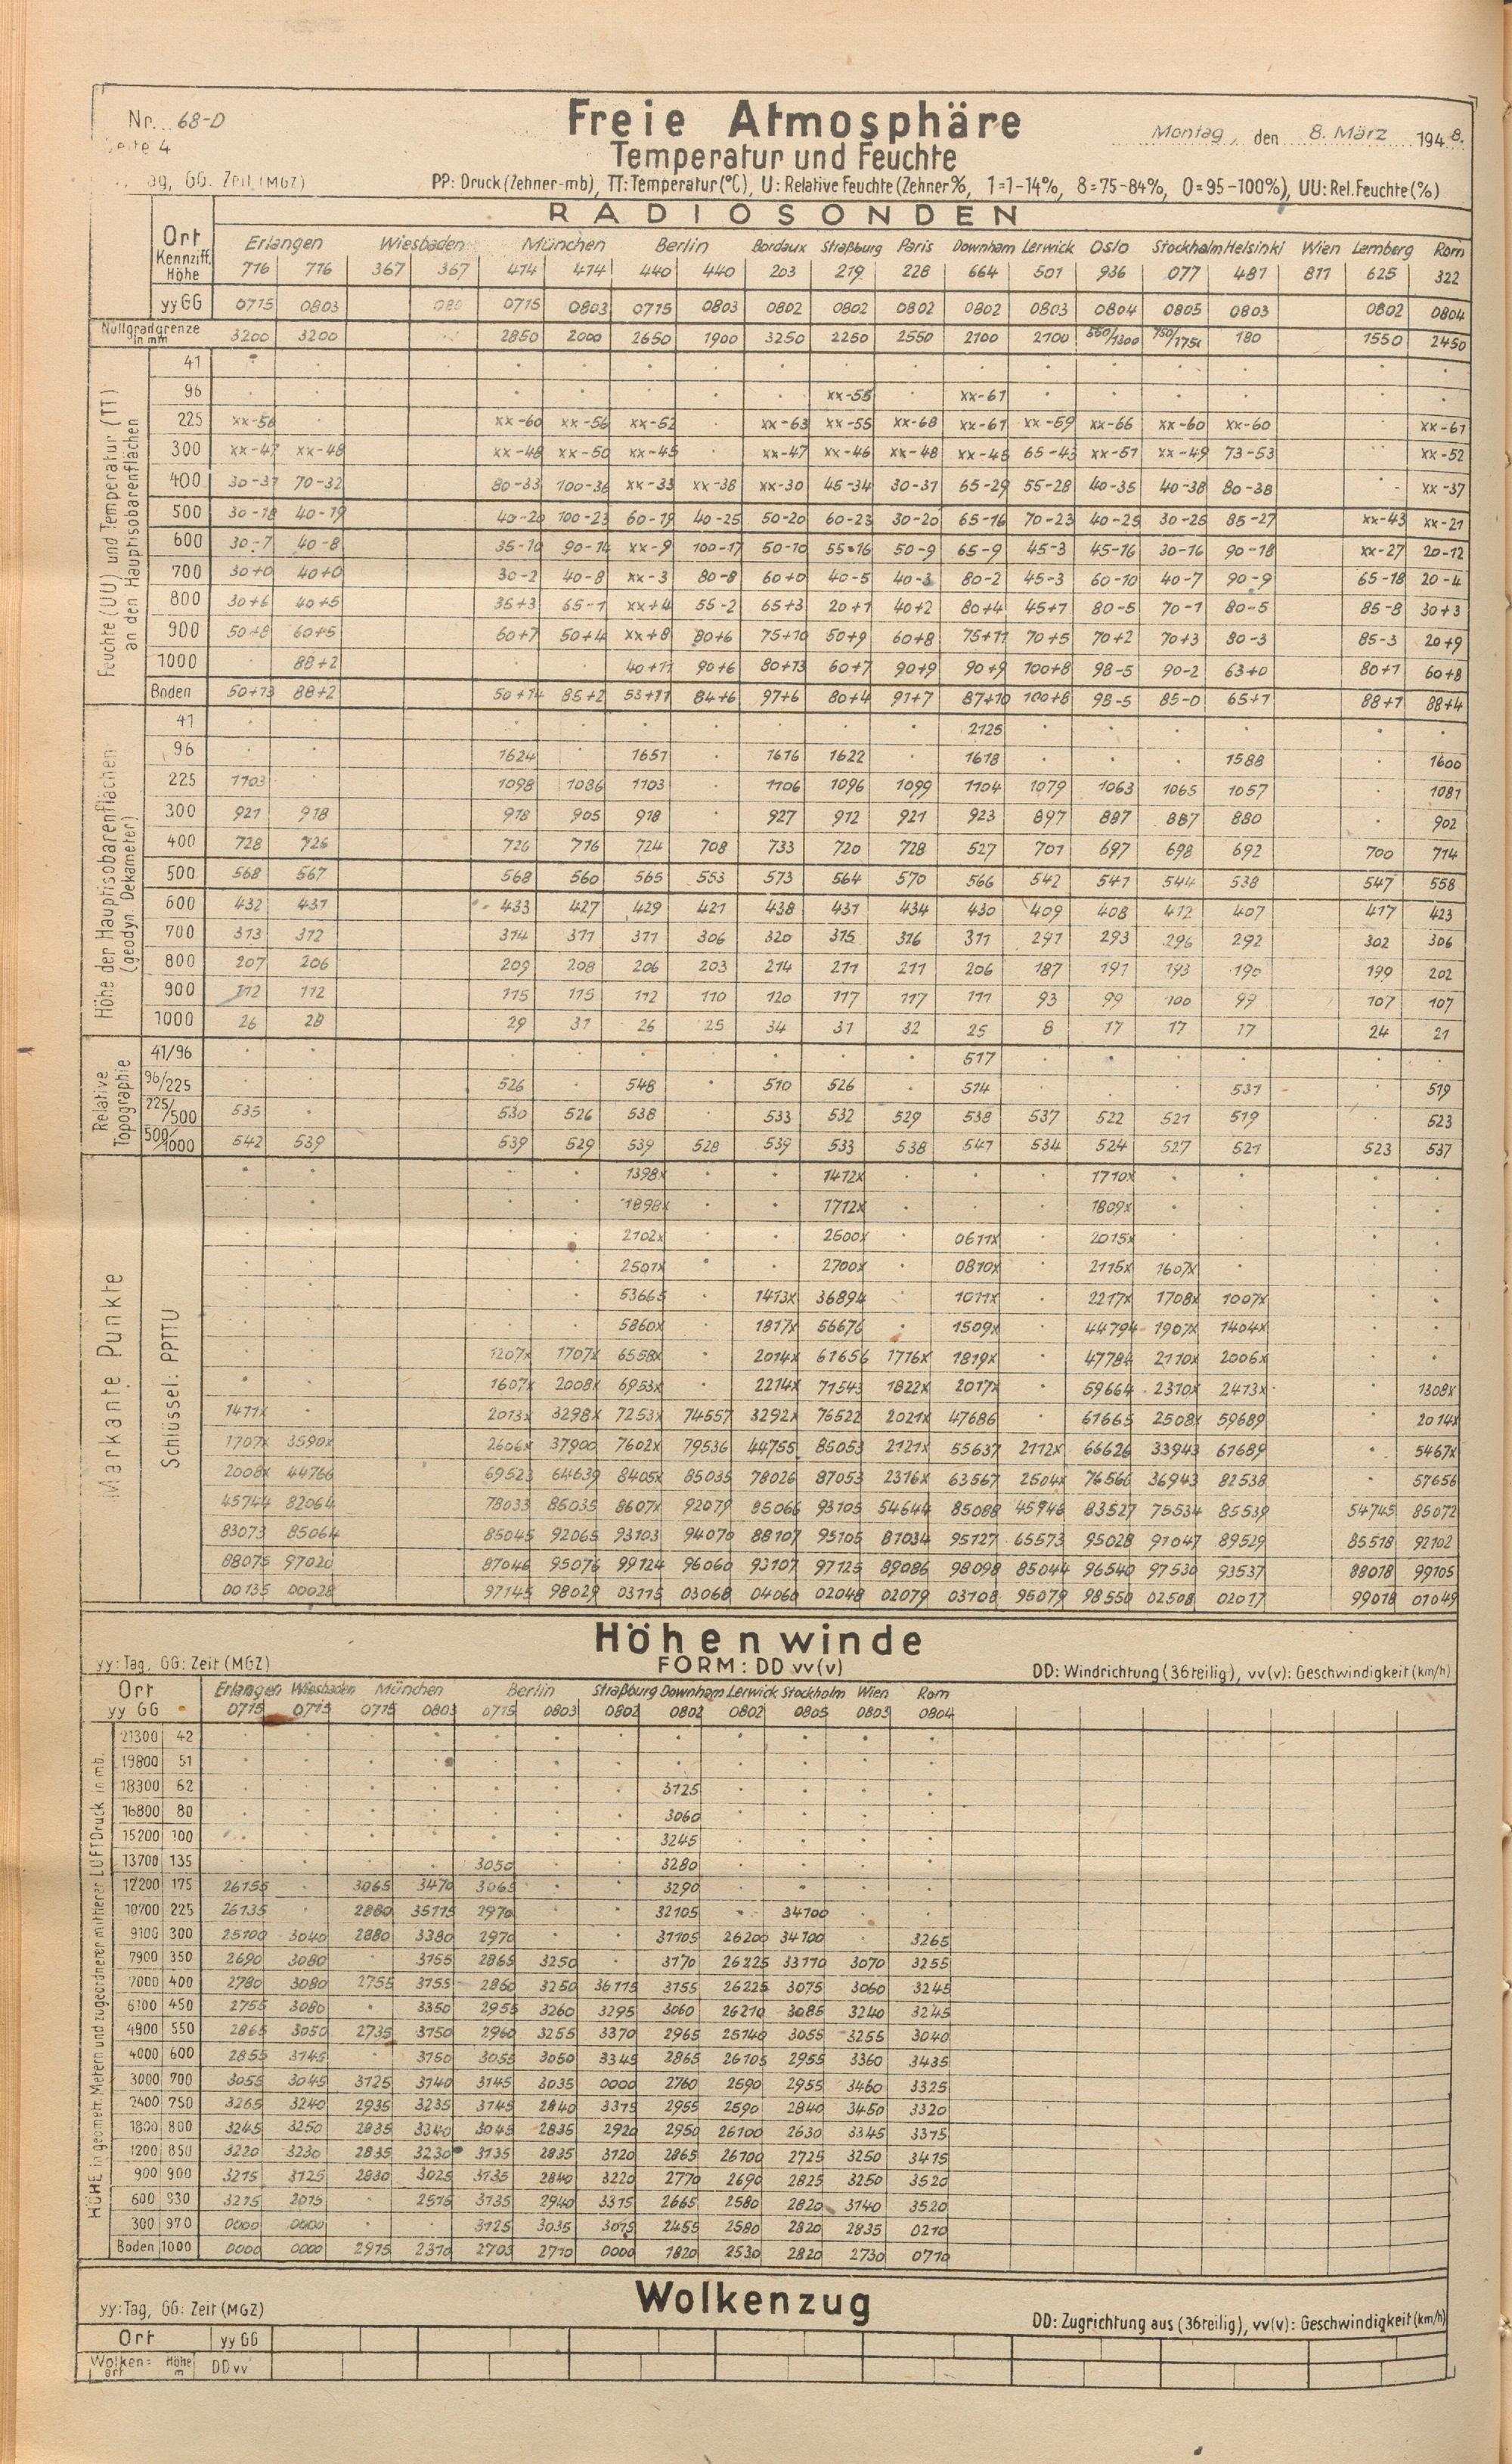 Nr. 68-D
Freie Atmosphäre
Montag, den 8. März 1948.
Seite 4
Temperatur und Feuchte
Tag, GG: Zeit (MGZ)
PP: Druck (Zehner-mb), TT: Temperatur (°C), U: Relative Feuchte (Zehner %, 1=1-14%, 8=75-84%, 0=95-100%), UU: Rel. Feuchte (%)
RADIOSONDEN
Ort Erlangen Wiesbaden München Berlin Bordaux Straßburg Paris Downham Lerwick Oslo Stockholm Helsinki Wien Lemberg Rom
Kennziff. Höhe 716 716 367 367 414 414 440 440 203 219 228 664 501 936 077 481 811 625 322
yy GG 0715 0803 0715 0803 0715 0803 0802 0802 0802 0802 0803 0804 0805 0803 0802 0804
Nullgradgrenze in mm 3200 3200 2850 2000 2650 1900 3250 2250 2550 2100 2100 550/1300 750/175 180 1550 2450
Feuchte (UU) und Temperatur (TT) an den Hauptisobarenflächen
41
96 xx-55 xx-61
225 xx-56 xx-60 xx-56 xx-52 xx-63 xx-55 xx-68 xx-61 xx-59 xx-66 xx-60 xx-60 xx-61
300 xx-47 xx-48 xx-48 xx-50 xx-45 xx-47 xx-46 xx-48 xx-45 65-43 xx-51 xx-49 73-53 xx-52
400 30-31 70-32 80-33 100-36 xx-33 xx-38 xx-30 45-34 30-31 65-29 55-28 40-35 40-38 80-38 xx-37
500 30-18 40-19 40-20 100-23 60-19 40-25 50-20 60-23 30-20 65-16 70-23 40-25 30-25 85-27 xx-43 xx-21
600 30-7 40-8 35-10 90-14 xx-9 100-17 50-10 55-16 50-9 65-9 45-3 45-16 30-16 90-18 xx-27 20-12
700 30+0 40+0 30-2 40-8 xx-3 80-8 60+0 40-5 40-3 80-2 45-3 60-10 40-7 90-9 65-18 20-4
800 30+6 40+5 35+3 65-1 xx+4 55-2 65+3 20+1 40+2 80+4 45+1 80-5 70-1 80-5 85-8 30+3
900 50+8 60+5 60+7 50+4 xx+8 80+6 75+10 50+9 60+8 75+11 70+5 70+2 70+3 80-3 85-3 20+9
1000 88+2 40+11 90+6 80+13 60+7 90+9 90+9 100+8 98-5 90-2 63+0 80+1 60+8
Boden 50+13 88+2 50+14 85+2 53+11 84+6 97+6 80+4 91+7 87+10 100+8 98-5 85-0 65+1 88+1 88+4
Höhe der Hauptisobarenflächen (geodyn. Dekameter)
41 2125
96 1624 1651 1616 1622 1618 1588 1600
225 1103 1098 1086 1103 1106 1096 1099 1104 1079 1063 1065 1057 1081
300 921 918 918 905 918 927 912 921 923 897 887 887 880 902
400 728 726 726 716 724 708 733 720 728 527 701 697 698 692 700 714
500 568 567 568 560 565 553 573 564 570 566 542 541 544 538 547 558
600 432 431 433 427 429 421 438 431 434 430 409 408 412 407 417 423
700 313 312 314 311 311 306 320 315 316 311 291 293 296 292 302 306
800 207 206 209 208 206 203 214 211 211 206 187 191 193 190 199 202
900 112 112 115 115 112 110 120 117 117 111 93 99 100 99 107 107
1000 26 28 29 31 26 25 34 31 32 25 8 17 17 17 24 21
Relative Topographie
41/96 517
96/225 526 548 510 526 514 531 519
225/500 535 530 526 538 533 532 529 538 537 522 521 519 523
500/1000 542 539 539 529 539 528 539 533 538 541 534 524 527 521 523 537
Markante Punkte
Schlüssel: PPTTU
1398x 1412x 1710x
1898x 1712x 1809x
2102x 2600x 0611x 2015x
2501x 2700x 0810x 2115x 1607x
53665 1413x 36894 1011x 2217x 1708x 1007x
5860x 1817x 56676 1509x 44794 1907x 1404x
1207x 1707x 6558x 2014x 61656 1716x 1819x 47784 2110x 2006x
1607x 2008x 6953x 2214x 71543 1822x 2017x 59664 2310x 2413x 1308x
1411x 2013x 3298x 7253x 74557 3292x 76522 2021x 47686 61665 2508x 59689 2014x
1707x 3590x 2606x 37900 7602x 79536 44755 85053 2121x 55637 2112x 66626 33943 61689 5467x
2008x 44766 69523 64639 8405x 85035 78026 87053 2316x 63567 2504x 76566 36943 82538 57656
45744 82064 78033 85035 8607x 92079 85066 93105 54644 85088 45946 83527 75534 85539 54745 85072
83073 85064 85045 92065 93103 94070 88107 95105 81034 95127 65573 95028 91047 89529 85518 92102
88075 97020 87046 95076 99124 96060 93107 97125 89086 98098 85044 96540 97530 93537 88018 99105
00135 00028 97145 98029 03115 03068 04060 02048 02079 03108 95079 98550 02508 02017 99018 01049
Höhenwinde
yy: Tag, GG: Zeit (MGZ)
FORM: DD vv(v)
DD: Windrichtung (36teilig), vv(v): Geschwindigkeit (km/h)
Ort Erlangen Wiesbaden München Berlin Straßburg Downham Lerwick Stockholm Wien Rom
yy GG 0715 0715 0715 0803 0715 0803 0802 0802 0802 0805 0803 0804
HÖHE in geometr. Metern und zugeordneter mittlerer LUFTDruck in mb.
21300 42
19800 51
18300 62 3125
16800 80 3060
15200 100 3245
13700 135 3050 3280
12200 175 26155 3065 3470 3065 3290
10700 225 26135 2880 35115 2970 32105 34100
9100 300 25100 3040 2880 3380 2970 31105 26200 34100 3265
7900 350 2690 3080 3155 2865 3250 3170 26225 33110 3070 3255
7000 400 2780 3080 2755 3155 2860 3250 36115 3155 26225 3075 3060 3245
6100 450 2755 3080 3350 2955 3260 3295 3060 26210 3085 3240 3245
4900 550 2865 3050 2735 3150 2960 3255 3370 2965 25140 3055 3255 3040
4000 600 2855 3145 3150 3055 3050 3345 2865 26105 2955 3360 3435
3000 700 3055 3045 3125 3140 3145 3035 0000 2760 2690 2955 3460 3325
2400 750 3265 3240 2935 3235 3145 2840 3315 2955 2590 2840 3450 3320
1800 800 3245 3250 2835 3340 3045 2835 2920 2950 26100 2630 3345 3315
1200 850 3220 3230 2835 3230 3135 2835 3120 2865 26100 2725 3250 3415
900 900 3215 3125 2830 3025 3135 2840 3220 2770 2690 2825 3250 3520
600 930 3215 2015 2515 3135 2940 3315 2665 2580 2820 3140 3520
300 970 0000 0000 3125 3035 3015 2455 2580 2820 2835 0210
Boden 1000 0000 0000 2915 2310 2705 2710 0000 1820 2530 2820 2730 0710
Wolkenzug
yy: Tag, GG: Zeit (MGZ)
DD: Zugrichtung aus (36teilig), vv(v): Geschwindigkeit (km/h)
Ort yy GG
Wolken= art Höhe m DD vv